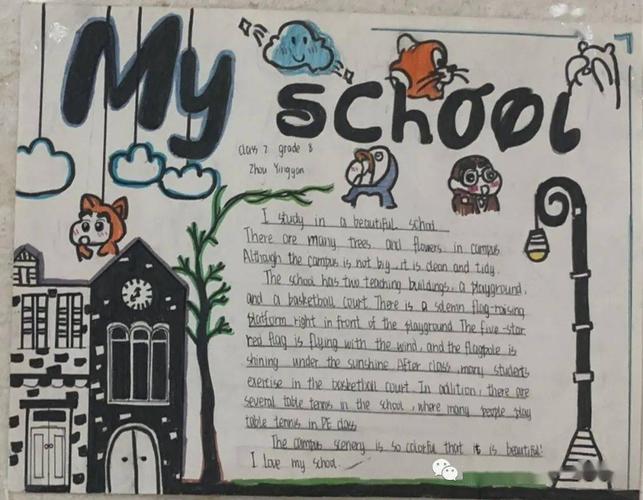 My school
Class 7 grade 8
Zhou Yingyan
I study in a beautiful school
There are many trees and flowers in campus
Although the campus is not big, it is clean and tidy.
The school has two teaching buildings, a playground,
and a basketball court. There is a solemn flag-raising
platform right in front of the playground The five-star
red flag is flying with the wind, and the flagpole is
shining under the sunshine. After class, many students
exertise in the basketball court. In adition, there are
several table tennis in the school, where many people play
table tennis in PE class
The campus scenery is so colorful that it is beautiful!
I love my school.